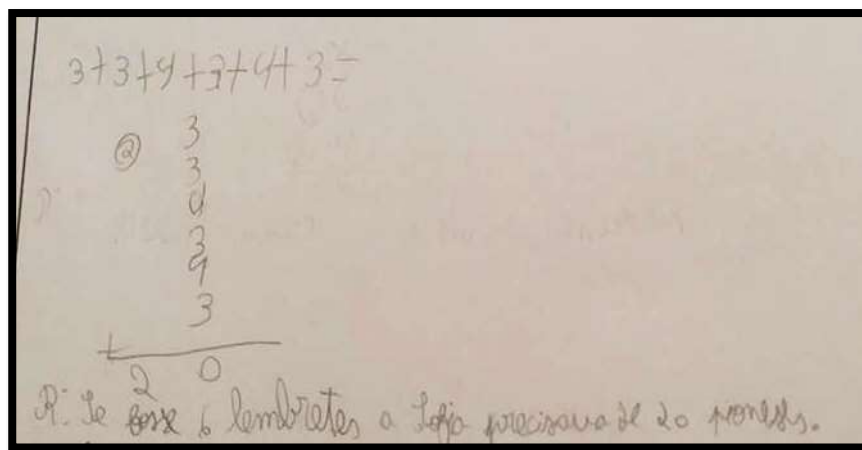 3+3+4+3+4+3=
② 3
3
4
3
4
3
+
2 0
R: Se fosse 6 lembretes a Loja precisava de 20 pioneses.